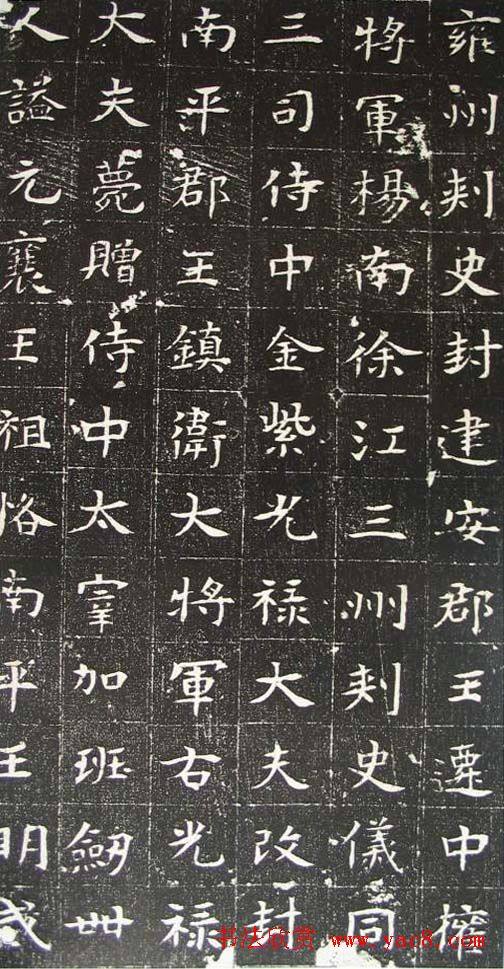 雍州刾史封建安郡王遷中權
將軍楊南徐江三州刾史儀同
三司侍中金紫光禄大夫改封
南平郡王鎮衛大將軍右光禄
大夫薨贈侍中太宰加班劒卌
人謚元襄王祖恪南平王明
书法欣赏 www.yac8.com